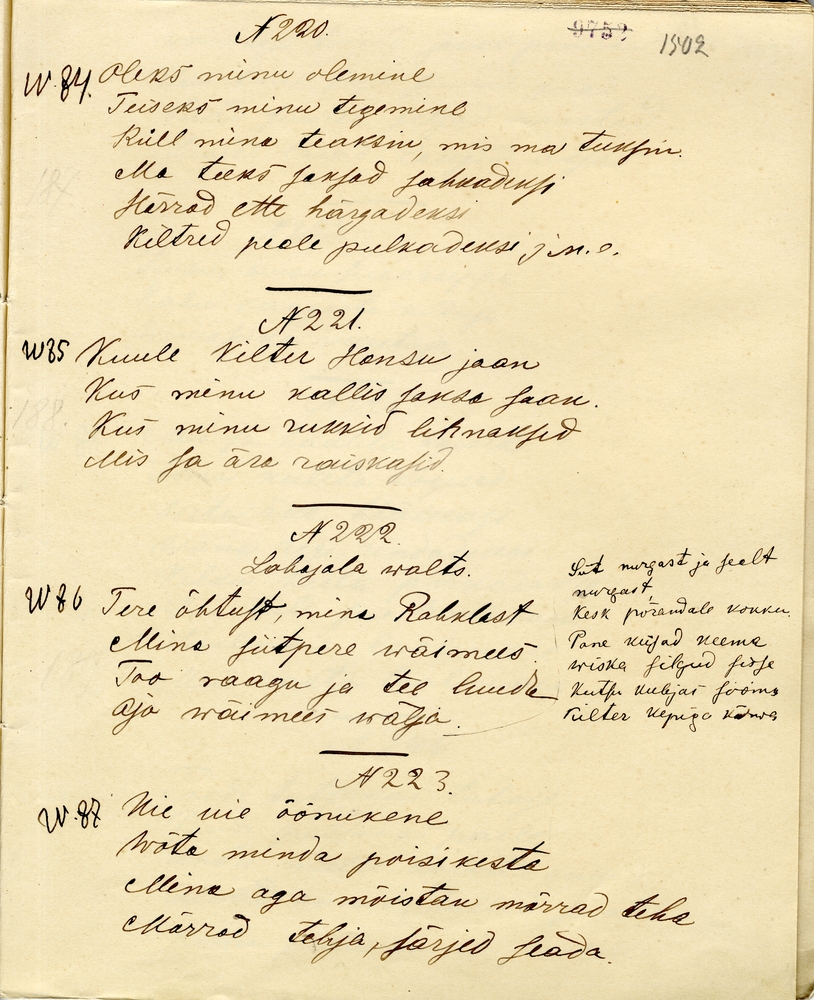 N 220.
9752
1502
W. 84. Oleks minu olemine
Teiseks minu tegemine
Küll mina teaksin, mis ma tuksin.
Ma teeks saksad sahkadeksi
Härrad ette härgadeksi
Kiltred peale pulkadeksi, j.n.e.
N 221.
W 85 Kuule Kilter Hansu jaan
Kus minu kallis saksa saan.
188. Kus minu rukkid lihnaksed
Mis sa ära raiskasid.
N 222.
Labajala walts.
W 86 Tere õhtust, mina Rahklast
Mina siitpere wäimees.
Too raagu ja tee luuda
Aja wäimees wälja.
Siit nurgast ja sealt
nurgast,
Kesk põrandale kokku.
Pane küijad keema
wiska silgud sisse
Kutsu kubjas sööma
Kilter kepiga kõrwa
N 223.
W. 87 Vie vie öönukene
Wõta minda poisikesta
Mina aga mõistan mõrrad teha
Mõrrad tehja, särjed seada.